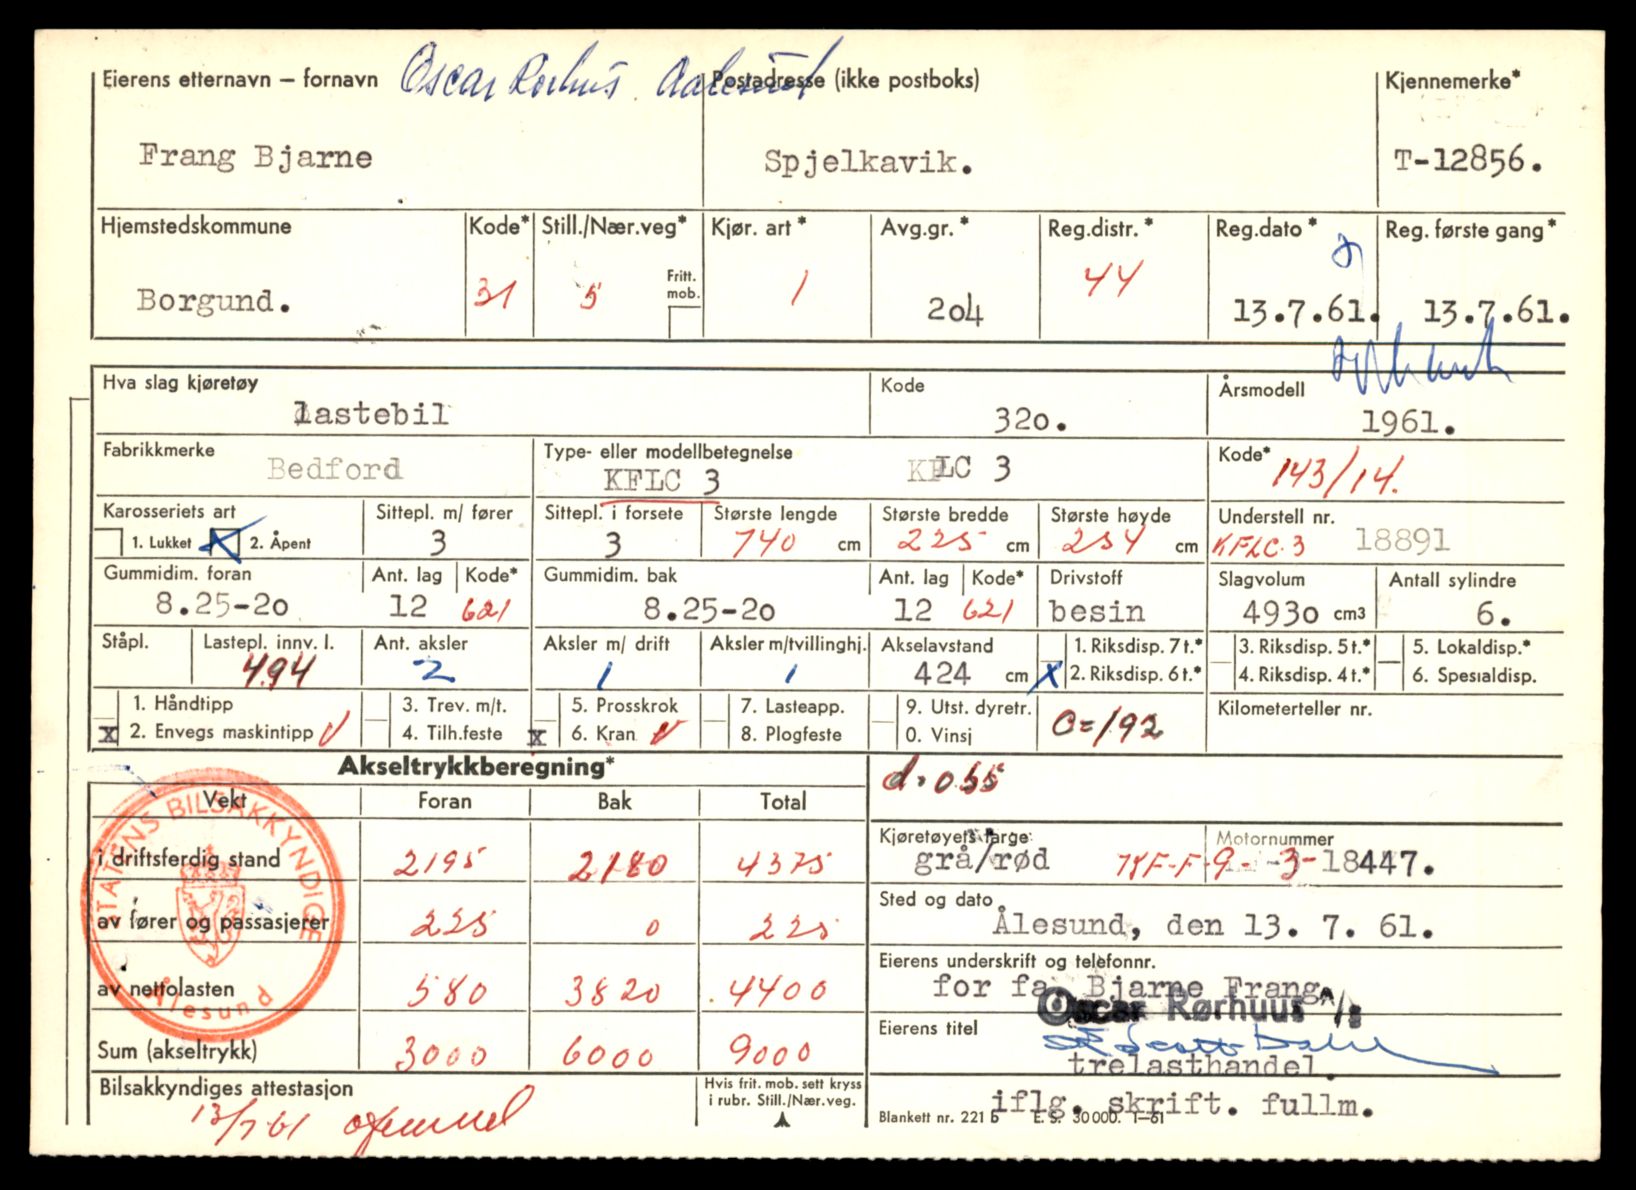 Eierens etternavn – fornavn Oscar Rørhus Aalesund Postadresse (ikke postboks) Kjennemerke*
Frang Bjarne Spjelkavik. T-12856.
Hjemstedskommune Kode* Still./Nær.veg* Kjør. art* Avg.gr.* Reg.distr.* Reg.dato* Reg. første gang*
Fritt. mob.
Borgund. 31 5 1 204 44 13.7.61. 13.7.61.
Hva slag kjøretøy Kode Årsmodell
lastebil 320. 1961.
Fabrikkmerke Type- eller modellbetegnelse Kode*
Bedford KFLC 3 KFLC 3 143/14.
Karosseriets art Sittepl. m/ fører Sittepl. i forsete Største lengde Største bredde Største høyde Understell nr.
1. Lukket X 2. Åpent 3 3 740 cm 225 cm 234 cm KFLC.3 18891
Gummidim. foran Ant. lag Kode* Gummidim. bak Ant. lag Kode* Drivstoff Slagvolum Antall sylindre
8.25-20 12 621 8.25-20 12 621 besin 4930 cm3 6.
Ståpl. Lastepl. innv. l. Ant. aksler Aksler m/ drift Aksler m/tvillinghj. Akselavstand 1. Riksdisp. 7 t.* 3. Riksdisp. 5 t.* 5. Lokaldisp.*
4.94 2 1 1 424 cm X 2. Riksdisp. 6 t.* 4. Riksdisp. 4 t.* 6. Spesialdisp.
1. Håndtipp 3. Trev. m/t. 5. Prosskrok 7. Lasteapp. 9. Utst. dyretr. Kilometerteller nr.
x 2. Envegs maskintipp 4. Tilh.feste x 6. Kran 8. Plogfeste 0. Vinsj C=192
Akseltrykkberegning* d.055
Vekt Foran Bak Total
i driftsferdig stand 2195 2180 4375
Kjøretøyets farge Motornummer
grå/rød 7KF-F-9- -3-18447.
av fører og passasjerer 225 0 225
Sted og dato
Ålesund, den 13. 7. 61.
av nettolasten 580 3820 4400
Eierens underskrift og telefonnr.
for fa. Bjarne Frang
Oscar Rørhuus A/S
Sum (akseltrykk) 3000 6000 9000
Eierens titel
trelasthandel.
Bilsakkyndiges attestasjon Hvis frit. mob. sett kryss
i rubr. Still./Nær.veg.
13/7-61
iflg. skrift. fullm.
Blankett nr. 221 b E. S. 30000. 1–61
STATENS BILSAKKYNDIGE
Ålesund